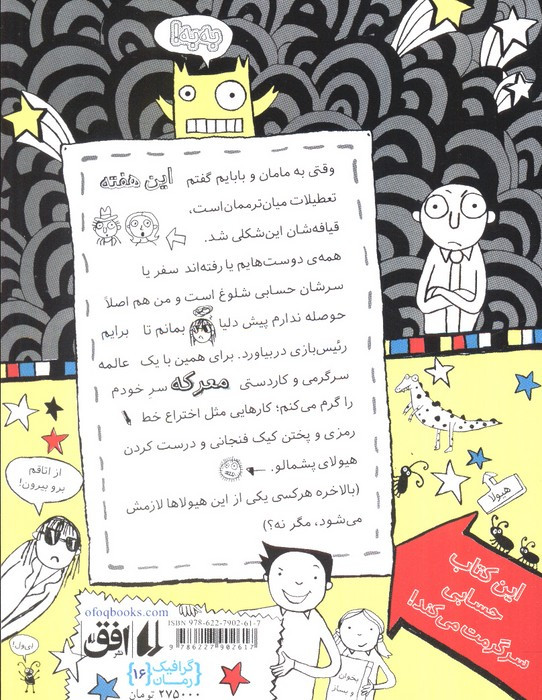 به‌به!
وقتی به مامان و بابایم گفتم این هفته
تعطیلات میان‌ترممان‌است،
قیافه‌شان این‌شکلی شد.
همه‌ی دوست‌هایم یا رفته‌اند سفر یا
سرشان حسابی شلوغ است و من هم اصلاً
حوصله ندارم پیش دلیا بمانم تا برایم
رئیس‌بازی دربیاورد. برای همین با یک عالمه
سرگرمی و کاردستی معرکه سر خودم
را گرم می‌کنم؛ کارهایی مثل اختراع خط
رمزی و پختن کیک فنجانی و درست کردن
هیولای پشمالو.
(بالاخره هرکسی یکی از این هیولاها لازمش
می‌شود، مگر نه؟)
از اتاقم
برو بیرون!
هیولا
این کتاب
حسابی
سرگرمت می‌کند!
ofoqbooks.com
ISBN 978-622-7902-61-7
9 786227 902617
نشر افق
گرافیک
رمان
۱۶
۲۷۵۰۰۰ تومان
بخوان
و بساز
ای‌ول!